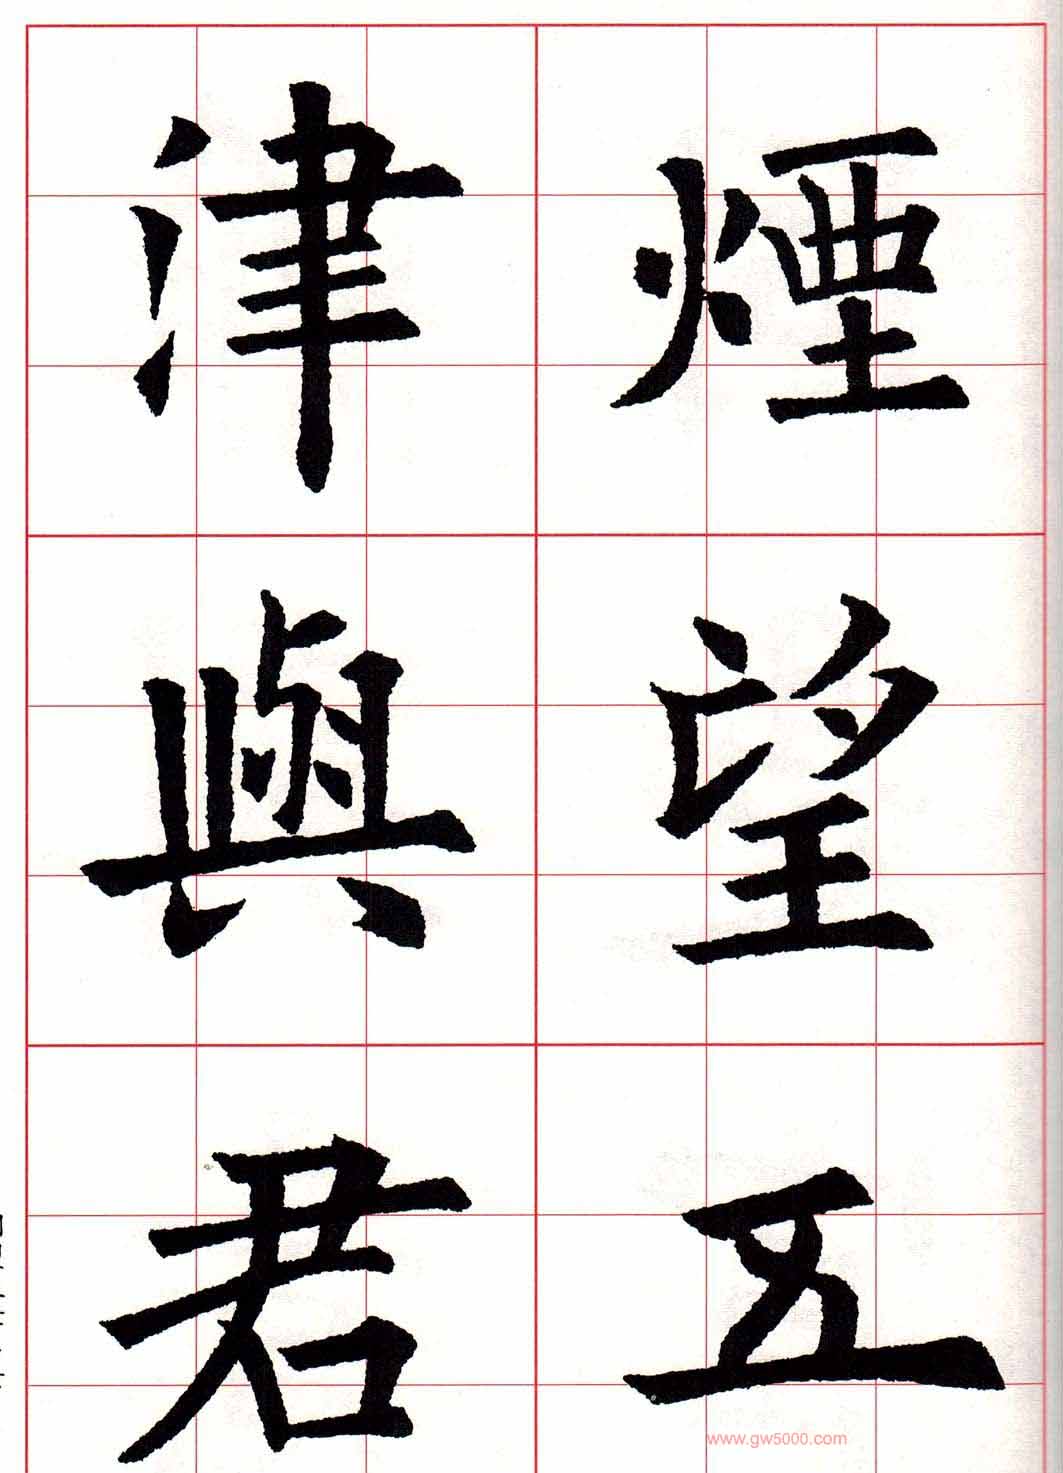 煙望五
津與君
www.gw5000.com